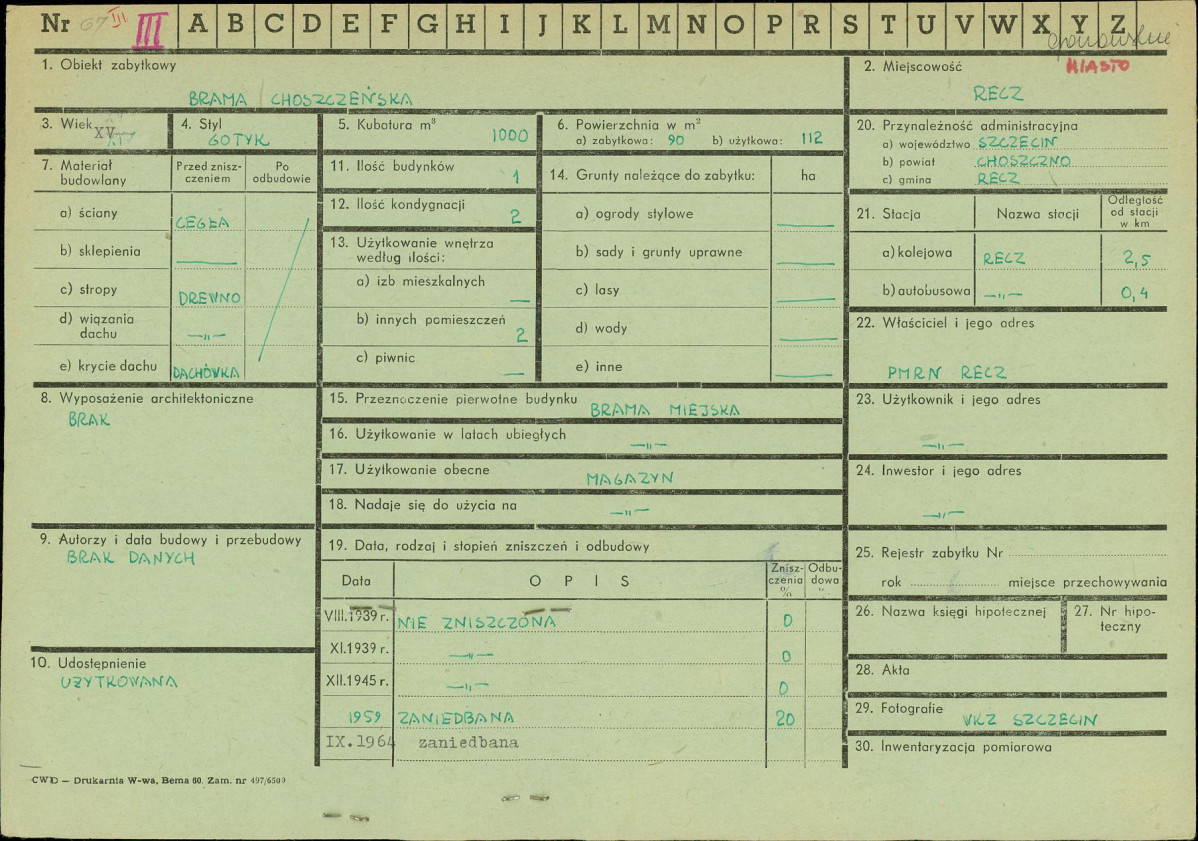 Nr 67 III III A B C D E F G H I J K L M N O P R S T U V W X Y Z
1. Obiekt zabytkowy
BRAMA CHOSZCZEŃSKA
2. Miejscowość MIASTO
RECZ
3. Wiek XV
4. Styl
GOTYK
5. Kubatura m³
1000
6. Powierzchnia w m²
a) zabytkowa: 90 b) użytkowa: 112
7. Materiał budowlany
Przed znisz-
czeniem
Po
odbudowie
a) ściany CEGŁA
b) sklepienia —
c) stropy DREWNO
d) wiązania
dachu —„—
e) krycie dachu DACHÓWKA
8. Wyposażenie architektoniczne
BRAK
9. Autorzy i data budowy i przebudowy
BRAK DANYCH
10. Udostępnienie
UŻYTKOWANA
11. Ilość budynków
1
12. Ilość kondygnacji
2
13. Użytkowanie wnętrza
według ilości:
a) izb mieszkalnych
—
b) innych pomieszczeń
2
c) piwnic
—
14. Grunty należące do zabytku: ha
a) ogrody stylowe —
b) sady i grunty uprawne —
c) lasy —
d) wody —
e) inne —
15. Przeznaczenie pierwotne budynku BRAMA MIEJSKA
16. Użytkowanie w latach ubiegłych —„—
17. Użytkowanie obecne MAGAZYN
18. Nadaje się do użycia na —„—
19. Data, rodzaj i stopień zniszczeń i odbudowy
Data O P I S Znisz-
czenia
%
Odbu-
dowa
%
VIII.1939 r. NIE ZNISZCZONA 0
XI.1939 r. —„— 0
XII.1945 r. —„— 0
1959 ZANIEDBANA 20
IX.1964 zaniedbana
20. Przynależność administracyjna
a) województwo SZCZECIN
b) powiat CHOSZCZNO
c) gmina RECZ
21. Stacja Nazwa stacji Odległość
od stacji
w km
a) kolejowa RECZ 2,5
b) autobusowa —„— 0,4
22. Właściciel i jego adres
PMRN RECZ
23. Użytkownik i jego adres
—„—
24. Inwestor i jego adres
—„—
25. Rejestr zabytku Nr
rok miejsce przechowywania
26. Nazwa księgi hipotecznej
27. Nr hipo-
teczny
28. Akta
29. Fotografie WKZ SZCZECIN
30. Inwentaryzacja pomiarowa
CWD — Drukarnia W-wa, Bema 60. Zam. nr 497/6500